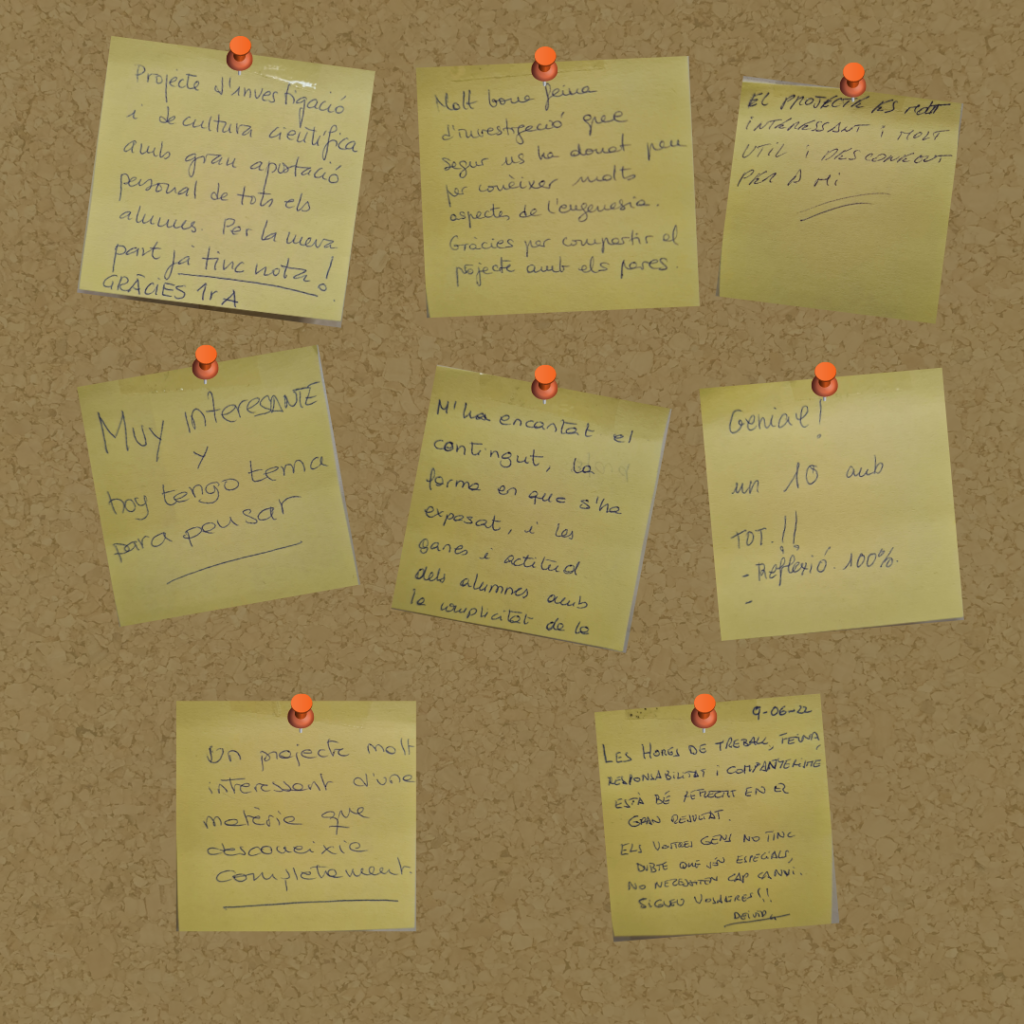 Projecte d'investigació
i de cultura científica
amb gran aportació
personal de tots els
alumnes. Per la meva
part ja tinc nota!
GRÀCIES 1r A
Molt bona feina
d'investigació que
segur us ha donat peu
per conèixer molts
aspectes de l'eugenesia.
Gràcies per compartir el
projecte amb els pares.
EL PROJECTE ES MOLT
INTERESSANT i MOLT
UTIL i DESCONEGUT
PER A Mi
MUY INTERESANTE
y
hoy tengo tema
para pensar
M'ha encantat el
contingut, la
forma en que s'ha
exposat, i les
ganes i actitud
dels alumnes amb
la complicitat de la
Genial!
un 10 amb
TOT.!!
- Reflexió 100%.
-
Un projecte molt
interessant d'una
matèria que
desconeixia
completament.
9-06-22
LES HORES DE TREBALL, FEINA,
RESPONSABILITAT i
ESTÀ BÉ REFLECTIT EN EL
GRAN RESULTAT.
ELS VOSTRES GENS NO TINC
DUBTE QUE SÓN ESPECIALS,
NO NECESSITEN CAP CANVI.
SIGUEU VOSALTRES!!
DEIVID